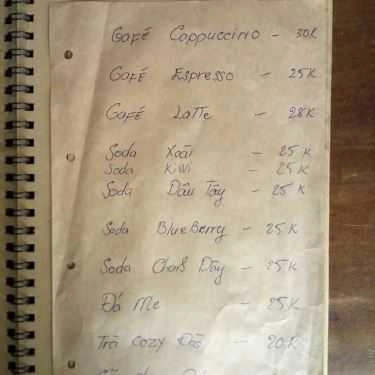 Café Cappuccino - 30K
Café Espresso - 25K
Café Latte - 28K
Soda Xoài - 25K
Soda Kiwi - 25K
Soda Dâu Tây - 25K
Soda BlueBerry - 25K
Soda Chanh Dây - 25K
Đá Me - 25K
Trà Cozy Đá - 20K